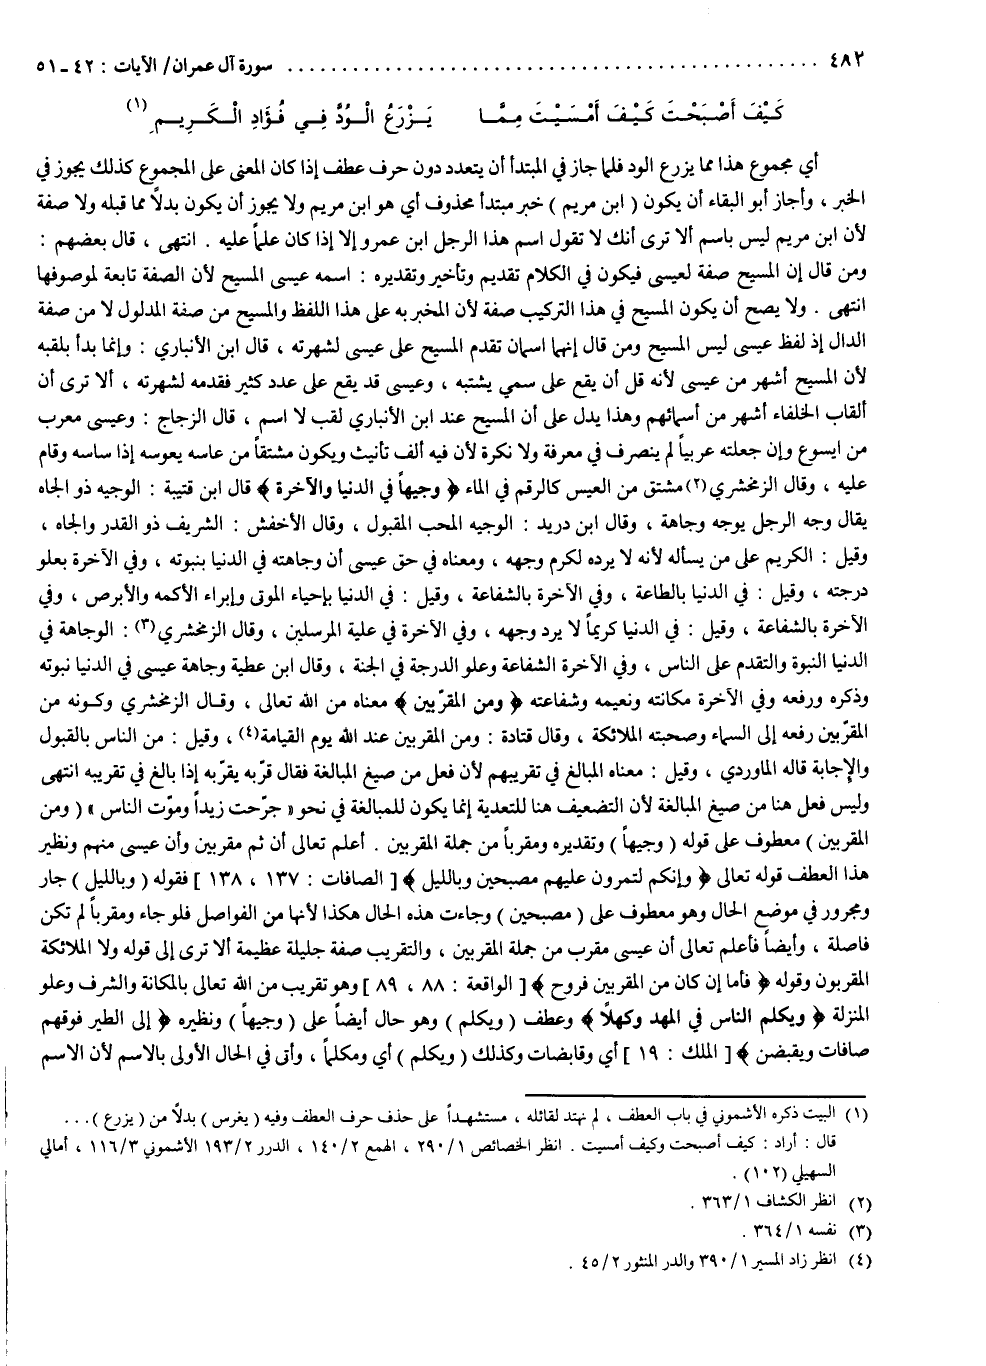 ٤٨٢ ........................................ سورة آل عمران/ الآيات : ٤٢ ـ ٥١
كَيْفَ أَصْبَحْتَ كَيْفَ أَمْسَيْتَ مِمَّا يَزْرَعُ الْوُدَّ فِي فُؤَادِ الْكَرِيمِ(١)
أي مجموع هذا مما يزرع الود فلما جاز في المبتدأ أن يتعدد دون حرف عطف إذا كان المعنى على المجموع كذلك يجوز في
الخبر ، وأجاز أبو البقاء أن يكون ( ابن مريم ) خبر مبتدأ محذوف أي هو ابن مريم ولا يجوز أن يكون بدلاً مما قبله ولا صفة
لأن ابن مريم ليس باسم ألا ترى أنك لا تقول اسم هذا الرجل ابن عمرو إلا إذا كان علماً عليه . انتهى ، قال بعضهم :
ومن قال إن المسيح صفة لعيسى فيكون في الكلام تقديم وتأخير وتقديره : اسمه عيسى المسيح لأن الصفة تابعة لموصوفها
انتهى . ولا يصح أن يكون المسيح في هذا التركيب صفة لأن المخبر به على هذا اللفظ والمسيح من صفة المدلول لا من صفة
الدال إذ لفظ عيسى ليس المسيح ومن قال إنهما اسمان تقدم المسيح على عيسى لشهرته ، قال ابن الأنباري : وإنما بدأ بلقبه
لأن المسيح أشهر من عيسى لأنه قل أن يقع على سمي يشتبه ، وعيسى قد يقع على عدد كثير فقدمه لشهرته ، ألا ترى أن
ألقاب الخلفاء أشهر من أسمائهم وهذا يدل على أن المسيح عند ابن الأنباري لقب لا اسم ، قال الزجاج : وعيسى معرب
من ايسوع وإن جعلته عربياً لم ينصرف في معرفة ولا نكرة لأن فيه ألف تأنيث ويكون مشتقاً من عاسه يعوسه إذا ساسه وقام
عليه ، وقال الزمخشري(٢) مشتق من العيس كالرقم في الماء ﴿ وجيهاً في الدنيا والآخرة ﴾ قال ابن قتيبة : الوجيه ذو الجاه
يقال وجه الرجل يوجه وجاهة ، وقال ابن دريد : الوجيه المحب المقبول ، وقال الأخفش : الشريف ذو القدر والجاه ،
وقيل : الكريم على من يسأله لأنه لا يرده لكرم وجهه ، ومعناه في حق عيسى أن وجاهته في الدنيا بنبوته ، وفي الآخرة بعلو
درجته ، وقيل : في الدنيا بالطاعة ، وفي الآخرة بالشفاعة ، وقيل : في الدنيا بإحياء الموتى وإبراء الأكمه والأبرص ، وفي
الآخرة بالشفاعة ، وقيل : في الدنيا كريماً لا يرد وجهه ، وفي الآخرة في علية المرسلين ، وقال الزمخشري(٣) : الوجاهة في
الدنيا النبوة والتقدم على الناس ، وفي الآخرة الشفاعة وعلو الدرجة في الجنة ، وقال ابن عطية وجاهة عيسى في الدنيا نبوته
وذكره ورفعه وفي الآخرة مكانته ونعيمه وشفاعته ﴿ ومن المقرّبين ﴾ معناه من الله تعالى ، وقال الزمخشري وكونه من
المقرّبين رفعه إلى السماء وصحبته الملائكة ، وقال قتادة : ومن المقربين عند الله يوم القيامة(٤) ، وقيل : من الناس بالقبول
والإجابة قاله الماوردي ، وقيل : معناه المبالغ في تقريبهم لأن فعل من صيغ المبالغة فقال قرّبه يقرّبه إذا بالغ في تقريبه انتهى
وليس فعل هنا من صيغ المبالغة لأن التضعيف هنا للتعدية إنما يكون للمبالغة في نحو « جرّحت زيداً وموّت الناس » ( ومن
المقربين ) معطوف على قوله ( وجيهاً ) وتقديره ومقرباً من جملة المقربين . أعلم تعالى أن ثم مقربين وأن عيسى منهم ونظير
هذا العطف قوله تعالى ﴿ وإنكم لتمرون عليهم مصبحين وبالليل ﴾ [ الصافات : ١٣٧ ، ١٣٨ ] فقوله ( وبالليل ) جار
ومجرور في موضع الحال وهو معطوف على ( مصبحين ) وجاءت هذه الحال هكذا لأنها من الفواصل فلو جاء ومقرباً لم تكن
فاصلة ، وأيضاً فأعلم تعالى أن عيسى مقرب من جملة المقربين ، والتقريب صفة جليلة عظيمة ألا ترى إلى قوله ولا الملائكة
المقربون وقوله ﴿ فأما إن كان من المقربين فروح ﴾ [ الواقعة : ٨٨ ، ٨٩ ] وهو تقريب من الله تعالى بالمكانة والشرف وعلو
المنزلة ﴿ ويكلم الناس في المهد وكهلاً ﴾ وعطف ( ويكلم ) وهو حال أيضاً على ( وجيهاً ) ونظيره ﴿ إلى الطير فوقهم
صافات ويقبضن ﴾ [ الملك : ١٩ ] أي وقابضات وكذلك ( ويكلم ) أي ومكلماً ، وأتى في الحال الأولى بالاسم لأن الاسم
(١) البيت ذكره الأشموني في باب العطف ، لم نهتد لقائله ، مستشهداً على حذف حرف العطف وفيه ( يغرس ) بدلاً من ( يزرع ) . . .
قال : أراد : كيف أصبحت وكيف أمسيت . انظر الخصائص ٢٩٠/١ ، الهمع ١٤٠/٢ ، الدرر ١٩٣/٢ الأشموني ١١٦/٣ ، أمالي
السهيلي (١٠٢) .
(٢) انظر الكشاف ٣٦٣/١ .
(٣) نفسه ٣٦٤/١ .
(٤) انظر زاد المسير ٣٩٠/١ والدر المنثور ٤٥/٢ .